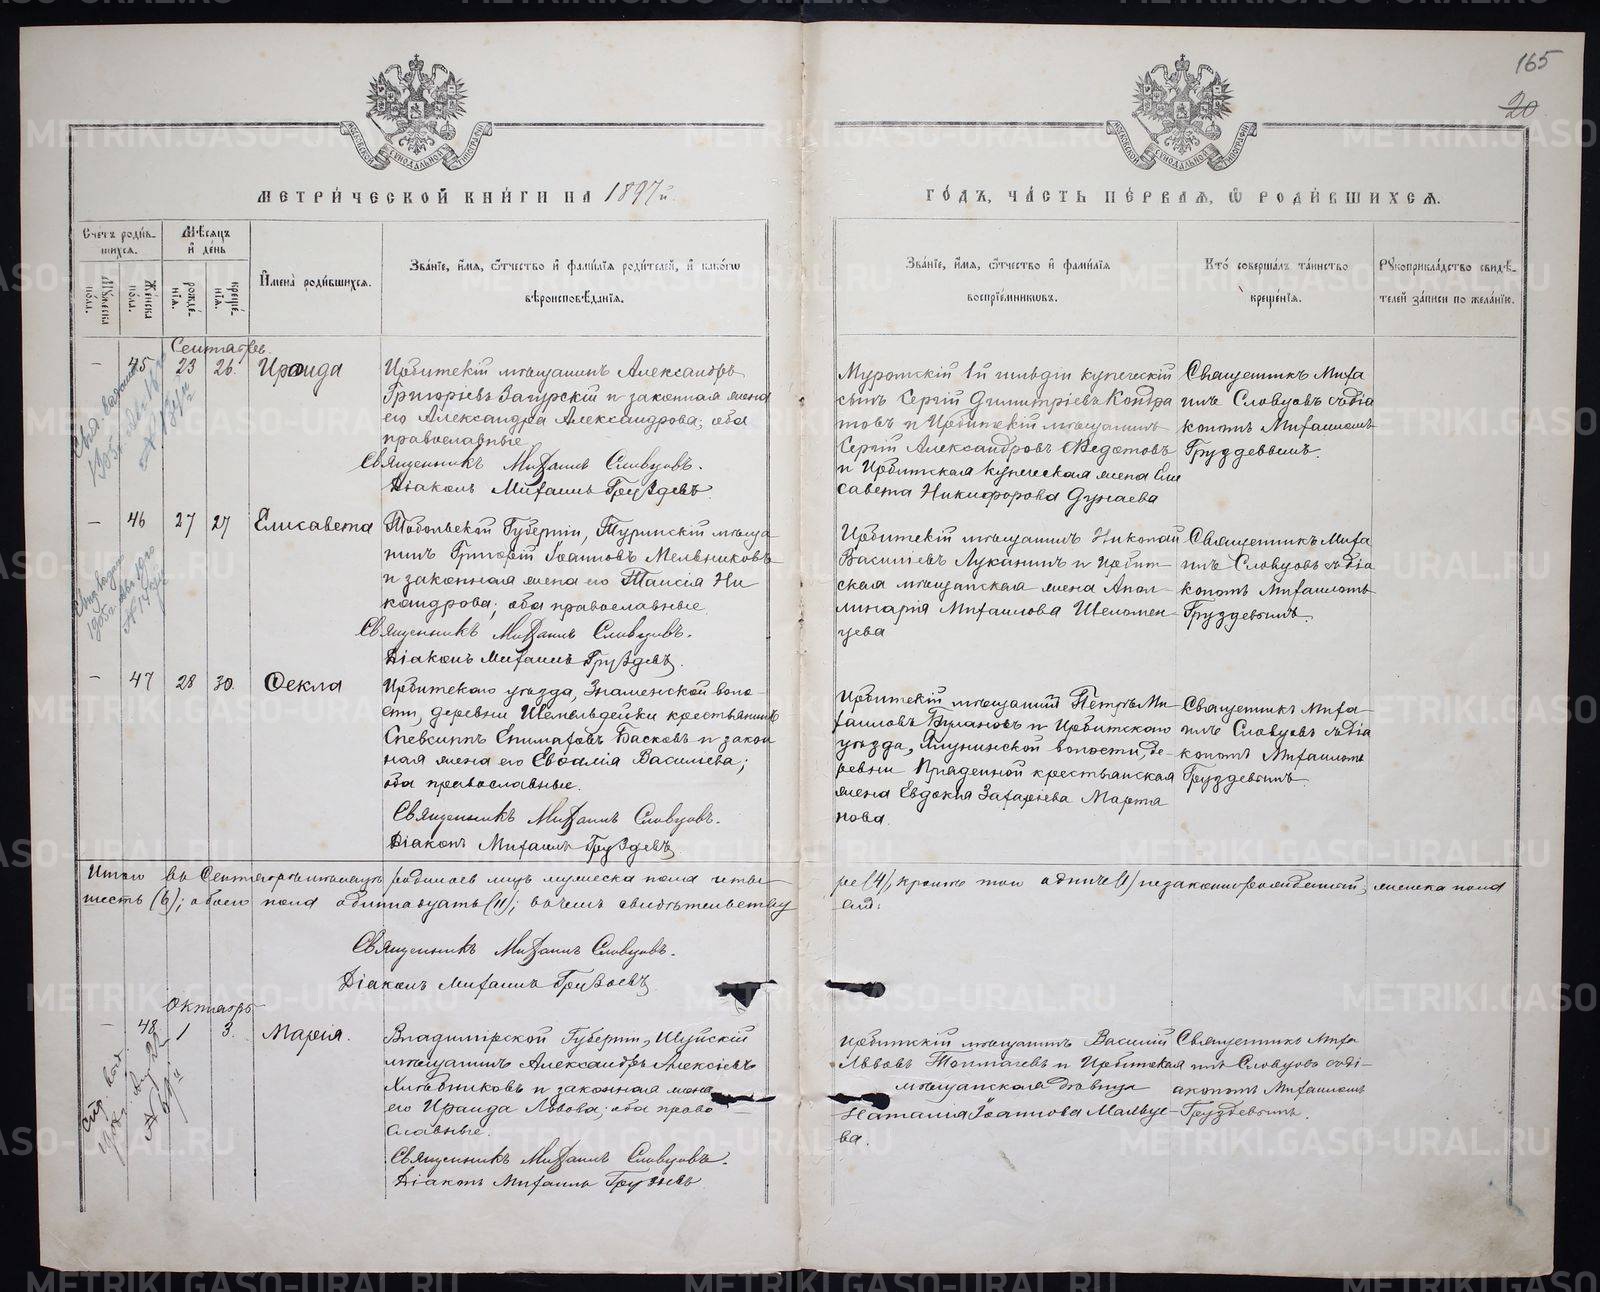 165
20
МЕТРИЧЕСКОЙ КНИГИ НА 1897й.
ГОДЪ, ЧАСТЬ ПЕРВАЯ, Ѿ РОДИВШИХСЯ.
Счетъ родившихся.
Мужеска пола.
Женска пола.
Мѣсяцъ и день
рожденія.
крещенія.
Имена родившихся.
Званіе, имя, отчество и фамилія родителей, и какого
вѣроисповѣданія.
Званіе, имя, отчество и фамилія
воспріемниковъ.
Кто совершалъ таинство
крещенія.
Рукоприкладство свидѣ-
телей записи по желанію.
Сентябрь.
– 45 23 26. Ираида
Ирбитскій мѣщанинъ Александръ
Григорьевъ Загурскій и законная жена
его Александра Александрова; оба
православные
Священникъ Михаилъ Словцовъ.
Діаконъ Михаилъ Груздевъ
Муромскій 1й гильдіи купеческій
сынъ Сергій Димитріевъ Кондра
товъ и Ирбитскій мѣщанинъ
Сергій Александровъ Ѳедотовъ
и Ирбитская купеческая жена Ели
савета Никифорова Дунаева
Священникъ Миха
илъ Словцовъ съ діа
кономъ Михаиломъ
Груздевымъ.
– 46 27 27 Елисавета
Тобольской Губерніи, Туринскій мѣща
нинъ Григорій Іоанновъ Мельниковъ
и законная жена его Таисія Ни
кандрова; оба православные.
Священникъ Михаилъ Словцовъ.
Діаконъ Михаилъ Груздевъ.
Ирбитскій мѣщанинъ Николай
Василіевъ Луканинъ и Ирбит-
ская мѣщанская жена Апол-
линарія Михаилова Шеломен-
цева
Священникъ Миха
илъ Словцовъ съ діа
кономъ Михаиломъ
Груздевымъ.
– 47 28 30. Ѳекла
Ирбитскаго уѣзда, Знаменской воло-
сти, деревни крестьянинъ
Басковъ и закон
ная жена его Василіева;
оба православные.
Священникъ Михаилъ Словцовъ.
Діаконъ Михаилъ Груздевъ
Ирбитскій мѣщанинъ Петръ Ми-
хаиловъ Булановъ и Ирбитскаго
уѣзда, волости, де-
ревни Прядеиной крестьянская
жена Евдокія Захаріева Мартя
нова.
Священникъ Миха-
илъ Словцовъ съ діа
кономъ Михаиломъ
Груздевымъ.
Итого въ Сентябрѣ мѣсяцѣ родилось лицъ мужеска пола четы-
ре (4), кромѣ того одинъ (1) незаконнорожденный, женска пола
шесть (6); обоего пола одиннадцать (11); въ чемъ свидѣтельству
емъ:
Священникъ Михаилъ Словцовъ.
Діаконъ Михаилъ Груздевъ
Октябрь
– 48 1 3. Марія.
Владимірской Губерніи, Шуйскій
мѣщанинъ Александръ Алексіевъ
и законная жена
его Ираида Львова; оба право
славные.
Священникъ Михаилъ Словцовъ.
Діаконъ Михаилъ Груздевъ
Ирбитскій мѣщанинъ Василій
Львовъ Толмачевъ и Ирбитская
мѣщанская дѣвица
Наталія Іоаннова Мальце-
ва.
Священникъ Миха
илъ Словцовъ съ ді-
акономъ Михаиломъ
Груздевымъ.
METRIKI.GASO-URAL.RU